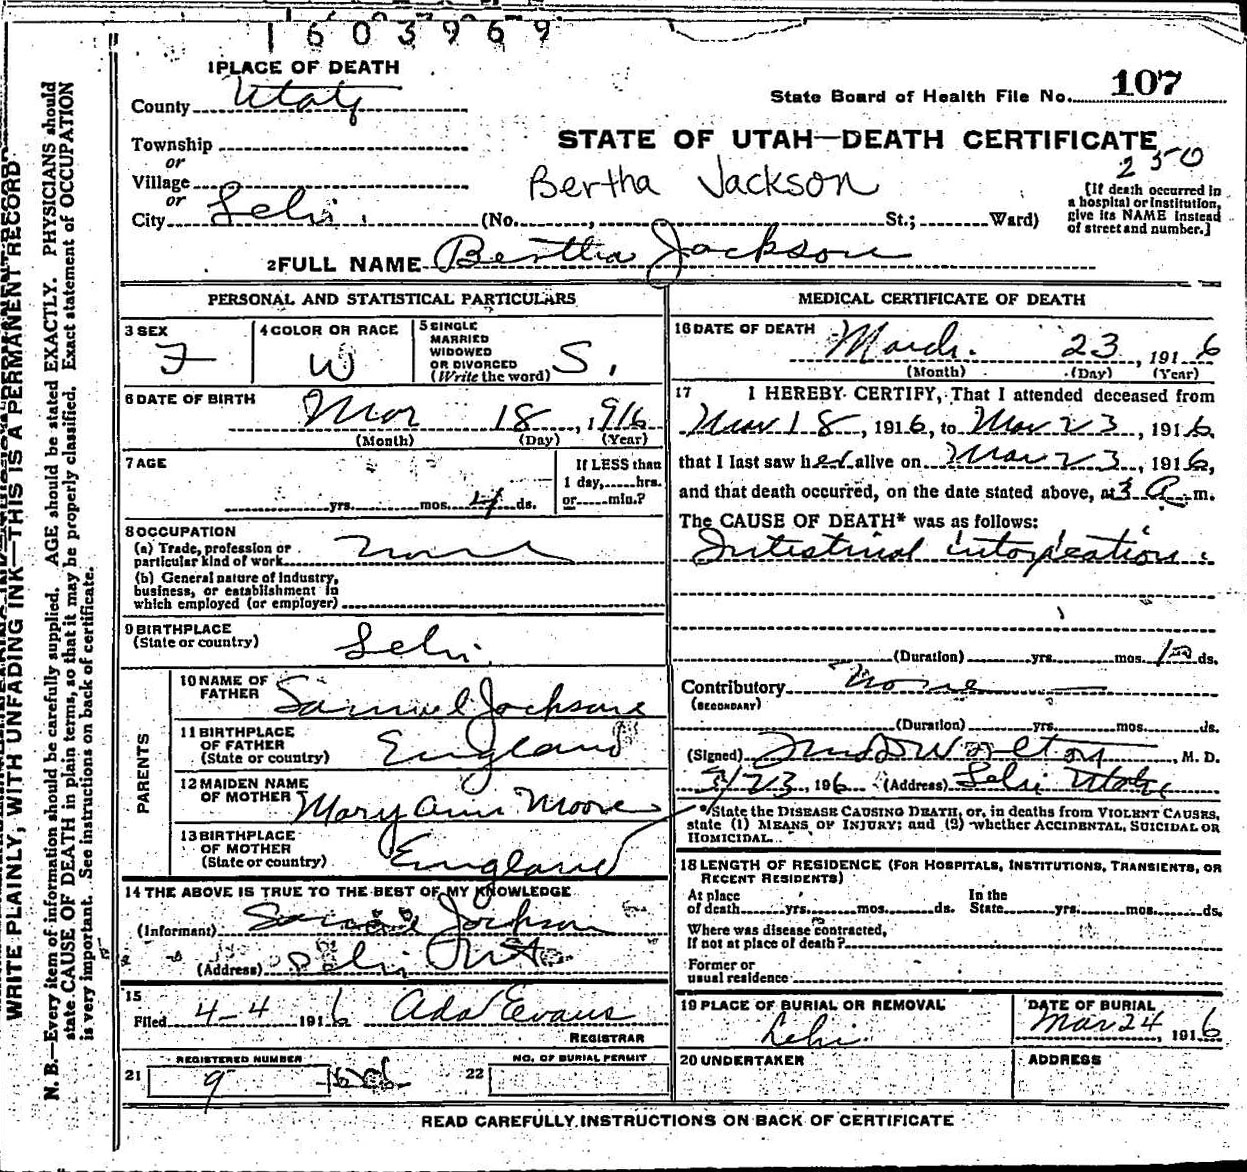 1603969
1 PLACE OF DEATH
County Utah
State Board of Health File No. 107
Township
or
Village
or
City Lehi
STATE OF UTAH—DEATH CERTIFICATE
250
Bertha Jackson
(No. , St.; Ward)
[If death occurred in
a hospital or institution,
give its NAME instead
of street and number.]
2 FULL NAME Bertha Jackson
PERSONAL AND STATISTICAL PARTICULARS
3 SEX F
4 COLOR OR RACE W
5 SINGLE
MARRIED
WIDOWED
OR DIVORCED
(Write the word) S.
6 DATE OF BIRTH Mar 18, 1916
(Month) (Day) (Year)
7 AGE
yrs. mos. 4 ds.
If LESS than
1 day, hrs.
or min.?
8 OCCUPATION
(a) Trade, profession or
particular kind of work
(b) General nature of industry,
business, or establishment in
which employed (or employer)
9 BIRTHPLACE
(State or country) Lehi
PARENTS
10 NAME OF
FATHER Samuel Jackson
11 BIRTHPLACE
OF FATHER
(State or country) England
12 MAIDEN NAME
OF MOTHER Mary Ann Moore
13 BIRTHPLACE
OF MOTHER
(State or country) England
14 THE ABOVE IS TRUE TO THE BEST OF MY KNOWLEDGE
(Informant) Jackson
(Address) Lehi
15
Filed 4-4 1916 Ada Evans
REGISTRAR
REGISTERED NUMBER
21 9
NO. OF BURIAL PERMIT
22
MEDICAL CERTIFICATE OF DEATH
16 DATE OF DEATH March. 23, 1916
(Month) (Day) (Year)
17 I HEREBY CERTIFY, That I attended deceased from
Mar 18, 1916, to Mar 23, 1916,
that I last saw her alive on Mar 23, 1916,
and that death occurred, on the date stated above, at 3 a. m.
The CAUSE OF DEATH* was as follows:
Intestinal intoxication.
(Duration) yrs. mos. ds.
Contributory None
(SECONDARY)
(Duration) yrs. mos. ds.
(Signed) Worlton, M. D.
3/23, 1916 (Address) Lehi Utah
*State the DISEASE CAUSING DEATH, or, in deaths from VIOLENT CAUSES,
state (1) MEANS OF INJURY; and (2) whether ACCIDENTAL, SUICIDAL OR
HOMICIDAL.
18 LENGTH OF RESIDENCE (FOR HOSPITALS, INSTITUTIONS, TRANSIENTS, OR
RECENT RESIDENTS)
At place
of death yrs. mos. ds.
In the
State yrs. mos. ds.
Where was disease contracted,
If not at place of death?
Former or
usual residence
19 PLACE OF BURIAL OR REMOVAL
Lehi
DATE OF BURIAL
Mar 24, 1916
20 UNDERTAKER
ADDRESS
READ CAREFULLY INSTRUCTIONS ON BACK OF CERTIFICATE
WRITE PLAINLY, WITH UNFADING INK—THIS IS A PERMANENT RECORD
N. B.—Every item of information should be carefully supplied. AGE should be stated EXACTLY. PHYSICIANS should
state CAUSE OF DEATH in plain terms, so that it may be properly classified. Exact statement of OCCUPATION
is very important. See instructions on back of certificate.